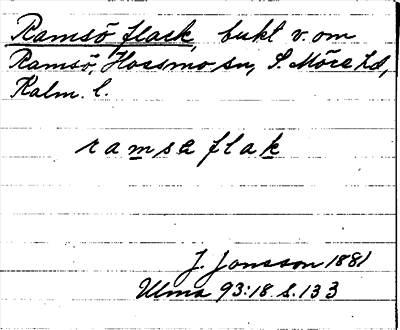 Ramsö flask, bukt v. om
Ramsö, Hossmo sn, S. Möre hd,
Kalm. l.
ramsa flak
J. Jonsson 1881
Ulma 93:18 s. 133